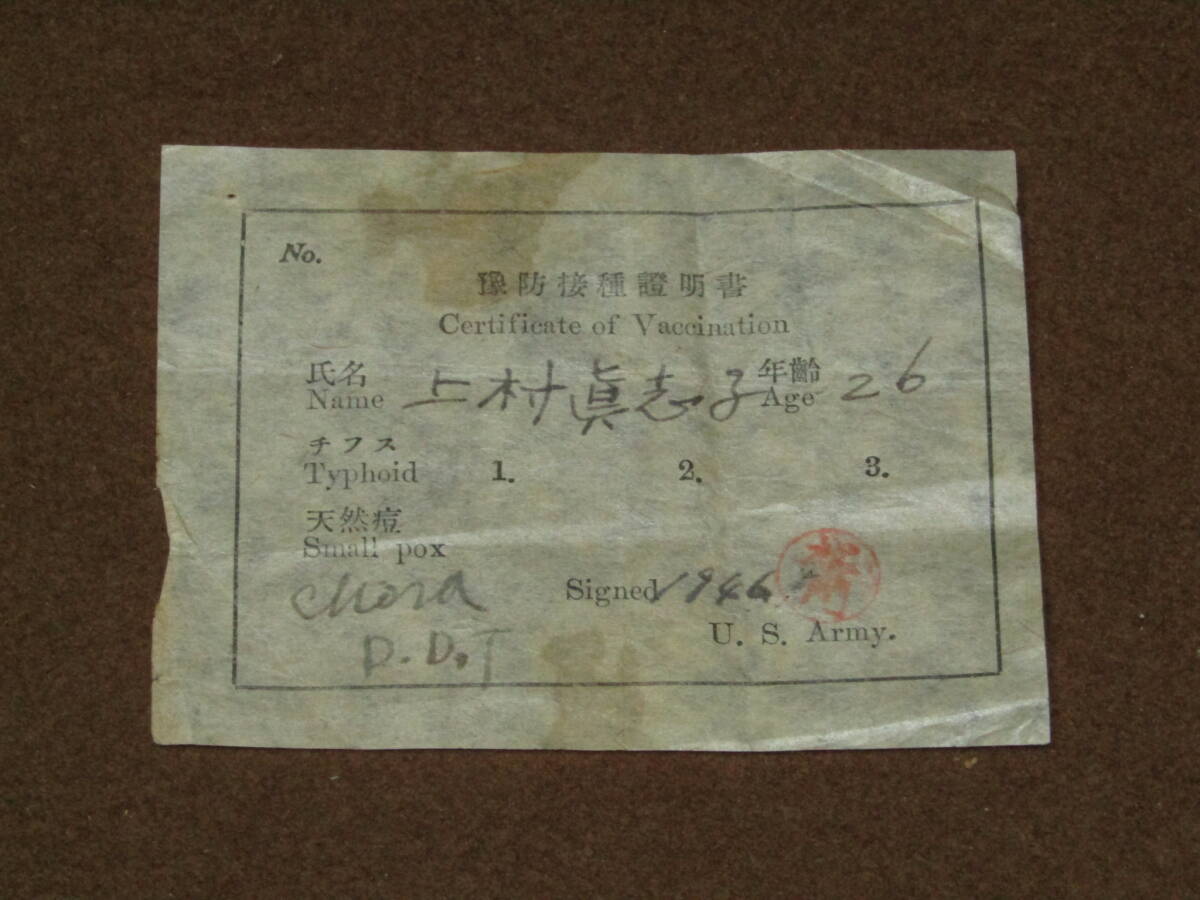 No.
豫防接種證明書
Certificate of Vaccination
氏名 年齡
Name 上村眞志子 Age 26
チフス
Typhoid 1. 2. 3.
天然痘
Small pox
Signed 1946
U. S. Army.
D.D.T